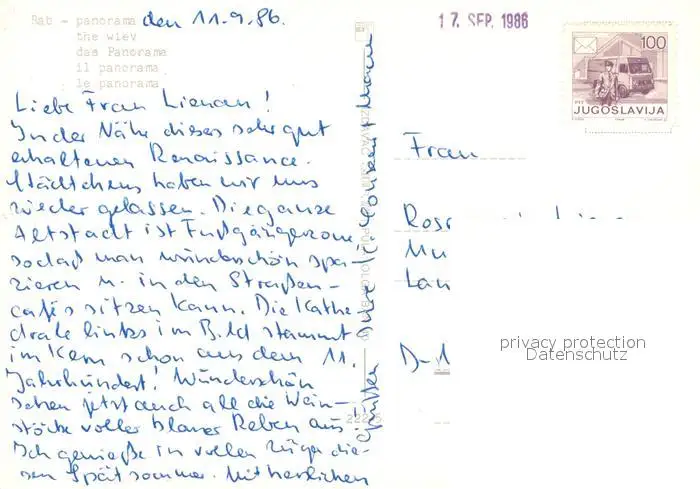 Rab - panorama den 11.9.86.
the wiev
das Panorama
il panorama
le panorama
17. SEP. 1986
100
PTT
JUGOSLAVIJA
Liebe Frau Lienau!
In der Nähe dieses sehr gut
erhaltenen Renaissance-
städtchens haben wir uns
nieder gelassen. Die ganze
Altstadt ist Fußgängerzone
sodaß man wunderschön spa-
zieren u. in den Straßen-
cafés sitzen kann. Die Kathe
drale links im Bild stammt
im Kern schon aus dem 11.
Jahrhundert! Wunderschön
sehen jetzt auch all die Wein-
stöcke voller blauer Reben aus!
Ich genieße in vollen Zügen die-
sen Spätsommer. Mit herzlichen
Grüßen Ihre
Frau
Rosr
Mu
Lan
D-1
privacy protection
Datenschutz